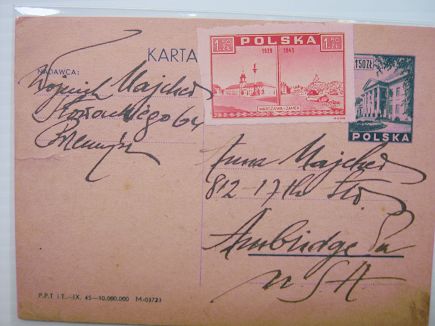 KARTA
NADAWCA:
Wojciech Majcher
Słowackiego 64
Przemyśl
1.50 ZŁ POLSKA
1939 1945
WARSZAWA - ZAMEK
1.50 ZŁ
POLSKA
Anna Majcher
812-17th St
Ambridge Pa
USA
P.P.T i T.-IX. 45-10.000.000 M-03723